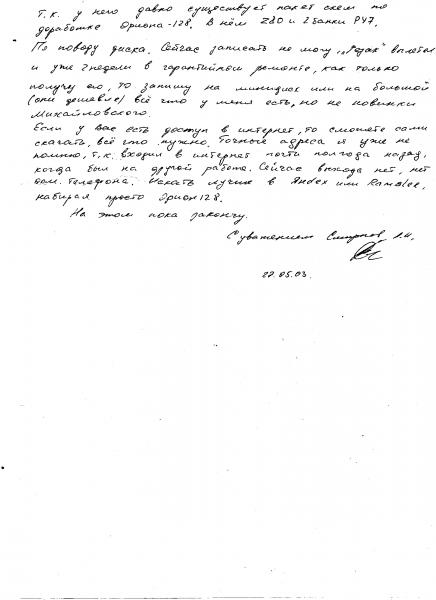 т.к. у него давно существует пакет схем по
доработке Ориона-128. В нём Z80 и 2 банки РУ7.
По поводу диска. Сейчас записать не могу, "резак" вылетел
и уже 2 недели в гарантийном ремонте, как только
получу его, то запишу на минидиск или на большой
(они дешевле) всё что у меня есть, но не новинки
Михайловского.
Если у вас есть доступ в интернет, то сможете сами
скачать, всё что нужно. Точные адреса я уже не
помню, т.к. входил в интернет почти полгода назад,
когда был на другой работе. Сейчас выхода нет, нет
дом. телефона. Искать лучше в Яndex или Rambler,
набирая просто Орион 128.
На этом пока закончу.
С уважением Смирнов
22.05.03.